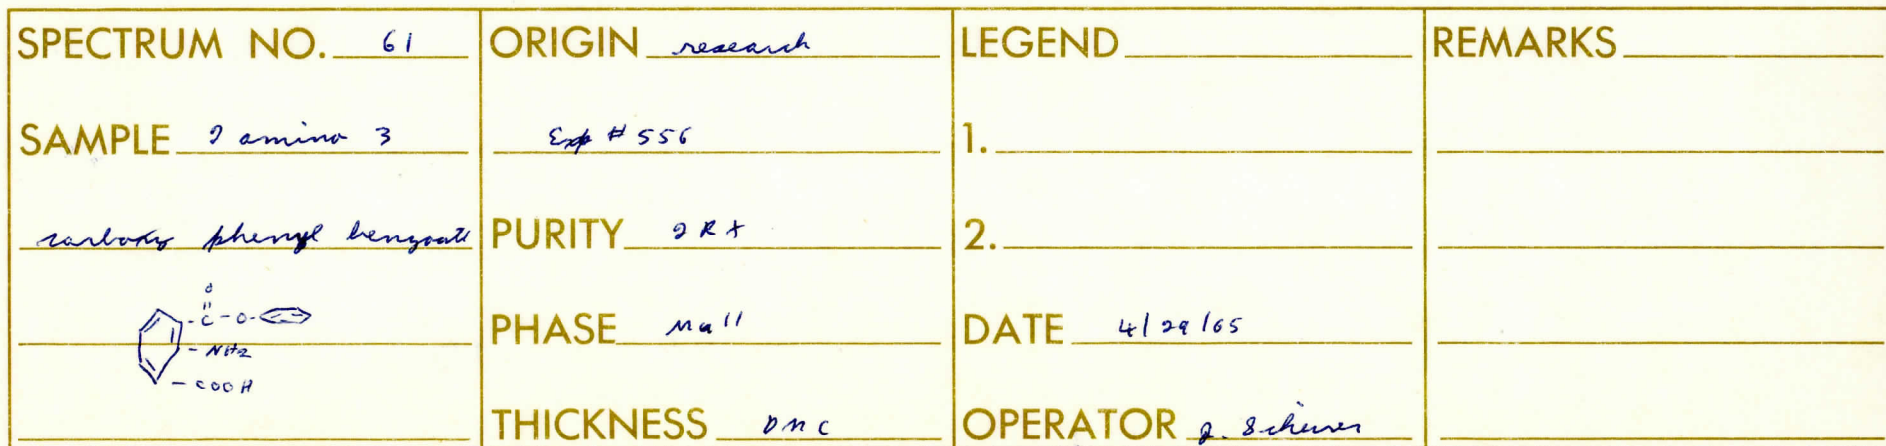 SPECTRUM NO. 61
SAMPLE 2 amino 3
carboxy phenyl benzoate
O
- C - O -
- NH2
- COOH
ORIGIN research
Exp # 556
PURITY 2 RX
PHASE Mull
THICKNESS
LEGEND
1.
2.
DATE 4/29/65
OPERATOR J. Scheuer
REMARKS